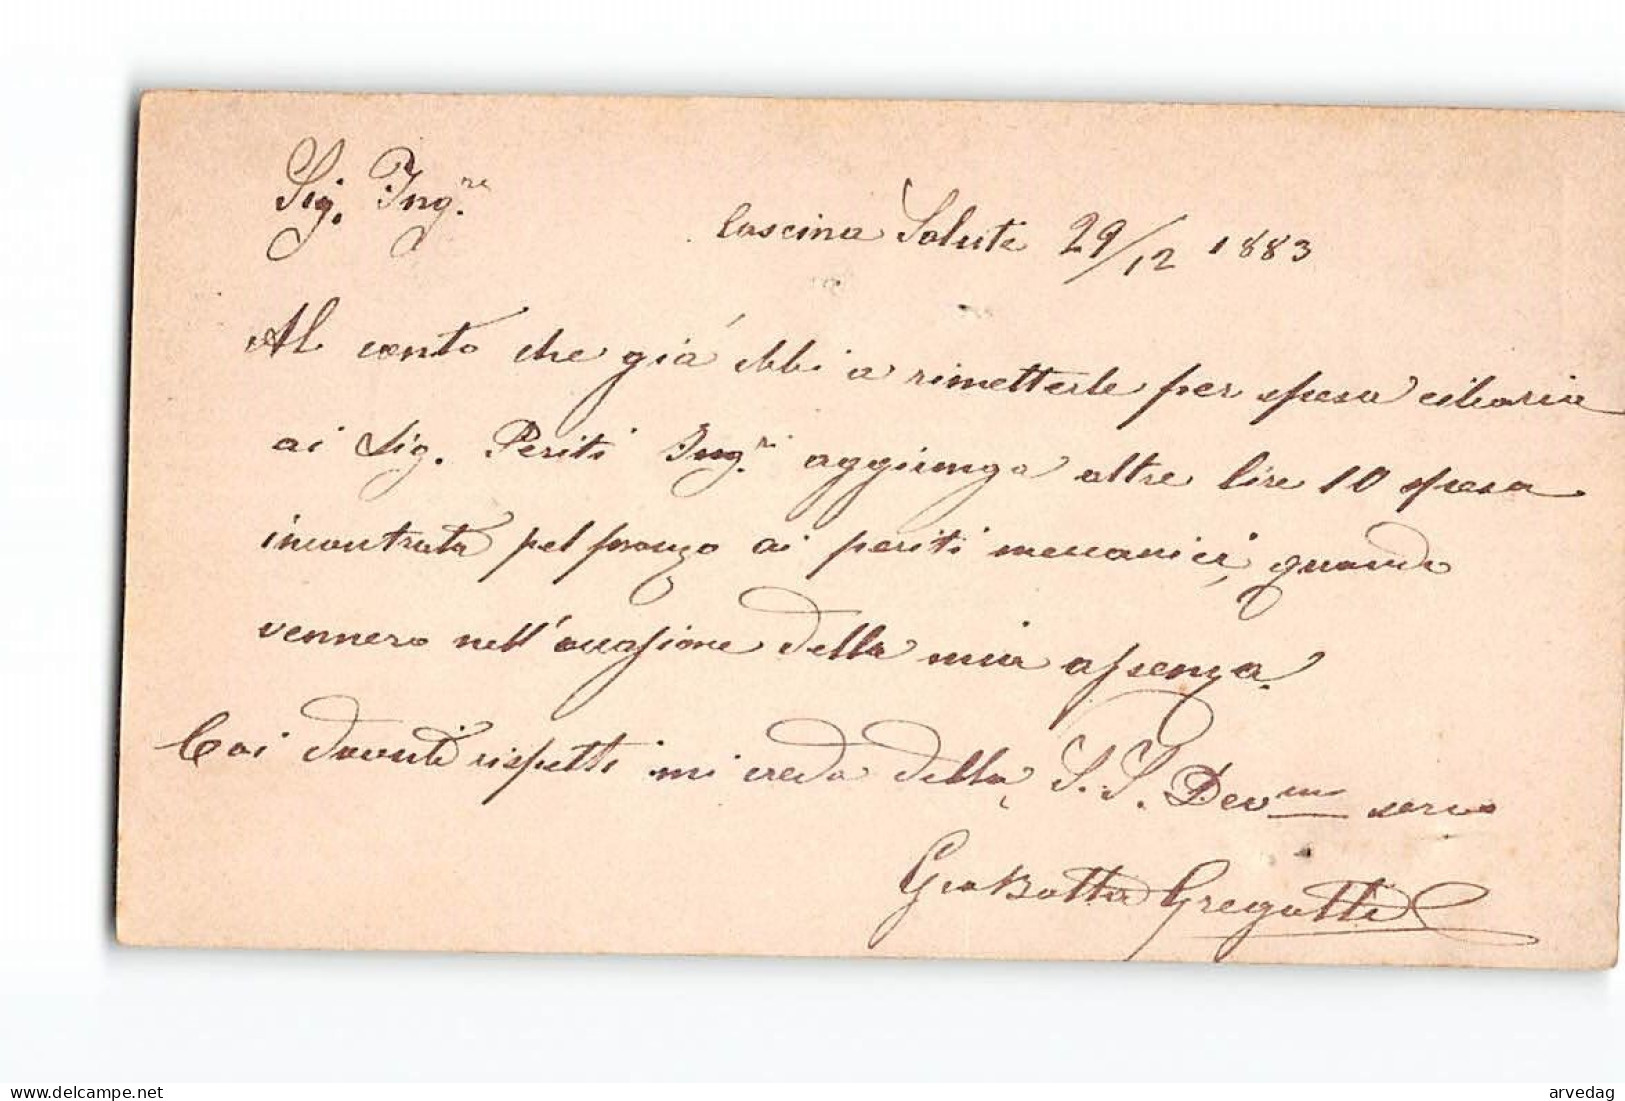 Sig. Ing.re
Cascina Salute 29/12 1883
Al conto che già ebbi a rimetterle per spesa cibaria
ai Sig. Periti Ing.ri aggiunga altre lire 10 spesa
incontrata pel pranzo ai periti meccanici, quando
vennero nell'occasione della mia assenza.
Coi dovuti rispetti mi creda della S.S. Dev.mo servo
Gio Batta Gregotti
www.delcampe.net
arvedag